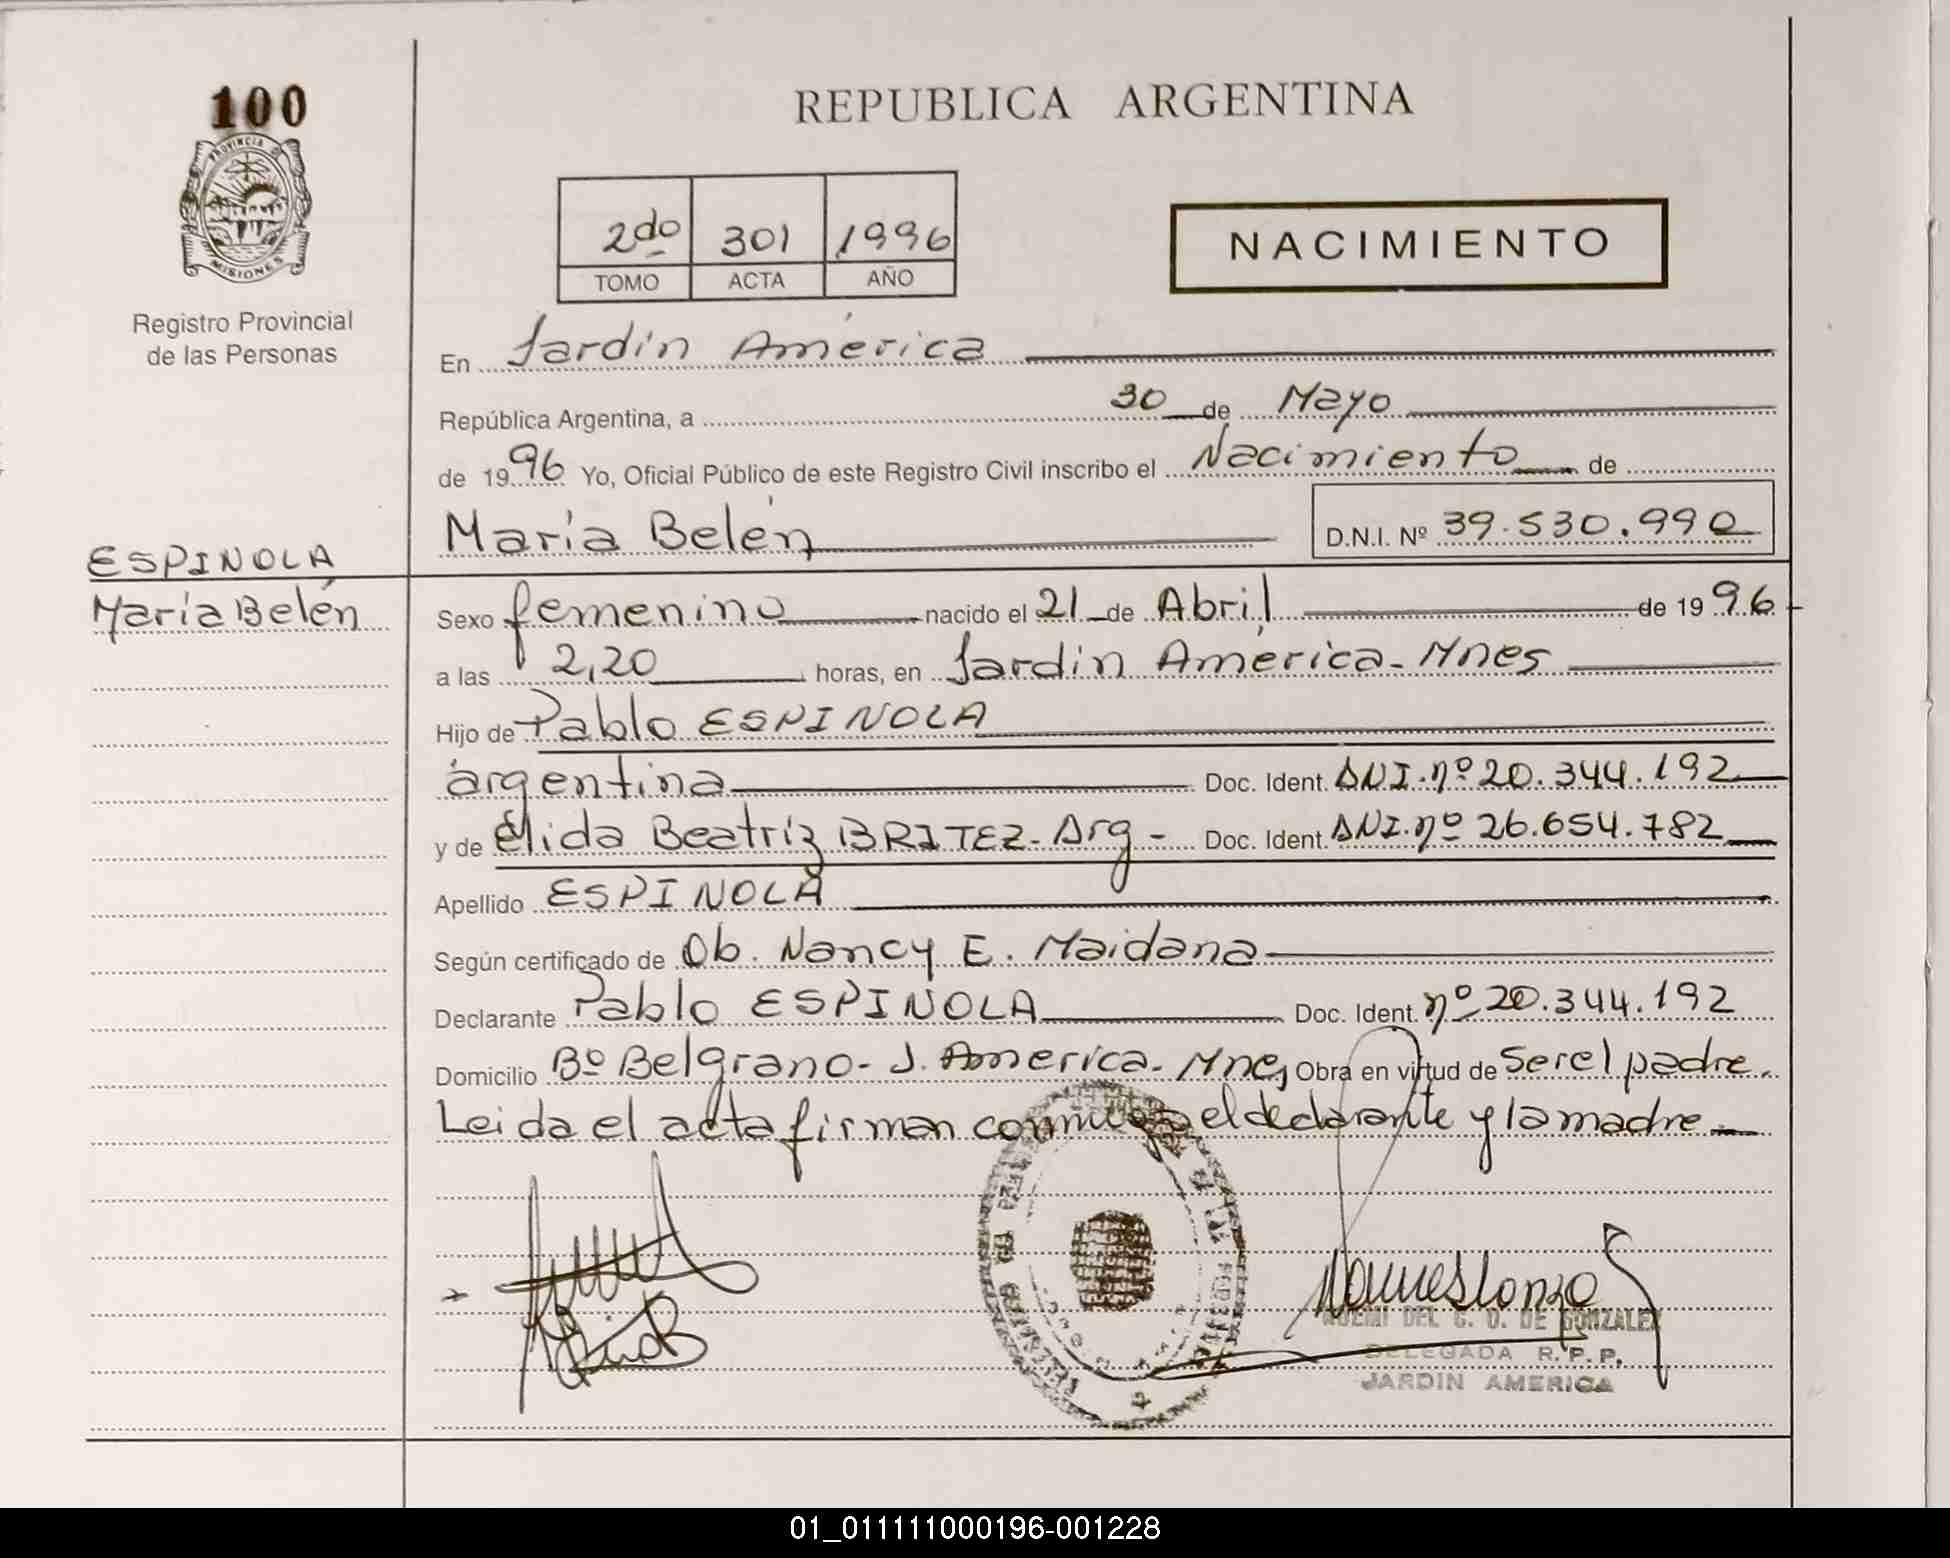 100
PROVINCIA
MISIONES
Registro Provincial
de las Personas
REPUBLICA ARGENTINA
2do 301 1996
TOMO ACTA AÑO
NACIMIENTO
En Jardín América
República Argentina, a 30 de Mayo
de 1996 Yo, Oficial Público de este Registro Civil inscribo el Nacimiento de
María Belén D.N.I. Nº 39.530.990
ESPINOLA
María Belén
Sexo femenino nacido el 21 de Abril de 1996
a las 2,20 horas, en Jardín América - Mnes
Hijo de Pablo ESPINOLA
argentina Doc. Ident. DNI. nº 20.344.192
y de Elida Beatriz BRITEZ - Arg - Doc. Ident. DNI. nº 26.654.782
Apellido ESPINOLA
Según certificado de Ob. Nancy E. Maidana
Declarante Pablo ESPINOLA Doc. Ident. nº 20.344.192
Domicilio Bº Belgrano - J. America - Mnes Obra en virtud de Ser el padre.
Leida el acta firman conmigo el declarante y la madre
NOEMI DEL C. O. DE GONZALEZ
DELEGADA R.P.P.
JARDIN AMERICA
01_011111000196-001228